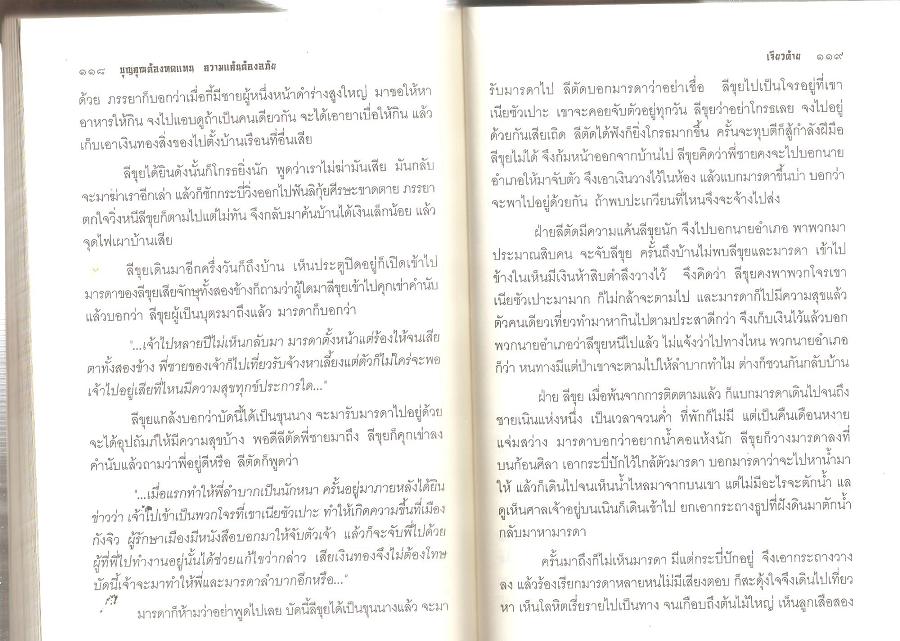 ๑๑๘ บุญคุณต้องทดแทน ความแค้นต้องอภัย
ด้วย ภรรยาก็บอกว่าเมื่อกี้มีชายผู้หนึ่งหน้าดำร่างสูงใหญ่ มาขอให้หา
อาหารให้กิน จงไปแอบดูถ้าเป็นคนเดียวกัน จะได้เอายาเบื่อให้กิน แล้ว
เก็บเอาเงินทองสิ่งของไปตั้งบ้านเรือนที่อื่นเสีย
ลีขุยได้ยินดังนั้นก็โกรธยิ่งนัก พูดว่าเราไม่ฆ่ามันเสีย มันกลับ
จะมาฆ่าเราอีกเล่า แล้วก็ชักกระบี่วิ่งออกไปฟันลิกุ้ยศีรษะขาดตาย ภรรยา
ตกใจวิ่งหนีลีขุยก็ตามไปแต่ไม่ทัน จึงกลับมาค้นบ้านได้เงินเล็กน้อย แล้ว
จุดไฟเผาบ้านเสีย
ลีขุยเดินมาอีกครึ่งวันก็ถึงบ้าน เห็นประตูปิดอยู่ก็เปิดเข้าไป
มารดาของลีขุยเสียจักษุทั้งสองข้างก็ถามว่าผู้ใดมาลีขุยเข้าไปคุกเข่าคำนับ
แล้วบอกว่า ลีขุยผู้เป็นบุตรมาถึงแล้ว มารดาก็บอกว่า
"...เจ้าไปหลายปีไม่เห็นกลับมา มารดาตั้งหน้าแต่ร้องไห้จนเสีย
ตาทั้งสองข้าง พี่ชายของเจ้าก็ไปเที่ยวรับจ้างหาเลี้ยงแต่ตัวก็ไม่ใคร่จะพอ
เจ้าไปอยู่เสียที่ไหนมีความสุขทุกข์ประการใด..."
ลีขุยแกล้งบอกว่าบัดนี้ได้เป็นขุนนาง จะมารับมารดาไปอยู่ด้วย
จะได้อุปถัมภ์ให้มีความสุขบ้าง พอดีลีตัดพี่ชายมาถึง ลีขุยก็คุกเข่าลง
คำนับแล้วถามว่าพี่อยู่ดีหรือ ลีตัดก็พูดว่า
"...เมื่อแรกทำให้พี่ลำบากเป็นนักหนา ครั้นอยู่มาภายหลังได้ยิน
ข่าวว่า เจ้าไปเข้าเป็นพวกโจรที่เขาเนียซัวเปาะ ทำให้เกิดความขึ้นที่เมือง
กังจิว ผู้รักษาเมืองมีหนังสือบอกมาให้จับตัวเจ้า แล้วก็จะจับพี่ไปด้วย
ผู้ที่พี่ไปทำงานอยู่นั้นได้ช่วยแก้ไขว่ากล่าว เสียเงินทองจึงไม่ต้องโทษ
บัดนี้เจ้าจะมาทำให้พี่และมารดาลำบากอีกหรือ..."
มารดาก็ห้ามว่าอย่าพูดไปเลย บัดนี้ลีขุยได้เป็นขุนนางแล้ว จะมา
เจียวต้าย ๑๑๙
รับมารดาไป ลีตัดบอกมารดาว่าอย่าเชื่อ ลีขุยไปเป็นโจรอยู่ที่เขา
เนียซัวเปาะ เขาจะคอยจับตัวอยู่ทุกวัน ลีขุยว่าอย่าโกรธเลย จงไปอยู่
ด้วยกันเสียเถิด ลีตัดได้ฟังก็ยิ่งโกรธมากขึ้น ครั้นจะทุบตีก็สู้กำลังฝีมือ
ลีขุยไม่ได้ จึงก้มหน้าออกจากบ้านไป ลีขุยคิดว่าพี่ชายคงจะไปบอกนาย
อำเภอให้มาจับตัว จึงเอาเงินวางไว้ในห้อง แล้วแบกมารดาขึ้นบ่า บอกว่า
จะพาไปอยู่ด้วยกัน ถ้าพบปะเกวียนที่ไหนจึงจะจ้างไปส่ง
ฝ่ายลีตัดมีความแค้นลีขุยนัก จึงไปบอกนายอำเภอ พาพวกมา
ประมาณสิบคน จะจับลีขุย ครั้นถึงบ้านไม่พบลีขุยและมารดา เข้าไป
ข้างในเห็นมีเงินห้าสิบตำลึงวางไว้ จึงคิดว่า ลีขุยคงพาพวกโจรเขา
เนียซัวเปาะมามาก ก็ไม่กล้าจะตามไป และมารดาก็ไปมีความสุขแล้ว
ตัวคนเดียวเที่ยวทำมาหากินไปตามประสาดีกว่า จึงเก็บเงินไว้แล้วบอก
พวกนายอำเภอว่าลีขุยหนีไปแล้ว ไม่แจ้งว่าไปทางไหน พวกนายอำเภอ
ก็ว่า หนทางมีแต่ป่าเขาจะตามไปให้ลำบากทำไม ต่างก็ชวนกันกลับบ้าน
ฝ่าย ลีขุย เมื่อพ้นจากการติดตามแล้ว ก็แบกมารดาเดินไปจนถึง
ชายเนินแห่งหนึ่ง เป็นเวลาจวนค่ำ ที่พักก็ไม่มี แต่เป็นคืนเดือนหงาย
แจ่มสว่าง มารดาบอกว่าอยากน้ำคอแห้งนัก ลีขุยก็วางมารดาลงที่
บนก้อนศิลา เอากระบี่ปักไว้ใกล้ตัวมารดา บอกมารดาว่าจะไปหาน้ำมา
ให้ แล้วก็เดินไปจนเห็นน้ำไหลมาจากบนเขา แต่ไม่มีอะไรจะตักน้ำ แล
ดูเห็นศาลเจ้าอยู่บนเนินก็เดินเข้าไป ยกเอากระถางธูปที่ฝังดินมาตักน้ำ
กลับมาหามารดา
ครั้นมาถึงก็ไม่เห็นมารดา มีแต่กระบี่ปักอยู่ จึงเอากระถางวาง
ลง แล้วร้องเรียกมารดาหลายหนไม่มีเสียงตอบ ก็สะดุ้งใจจึงเดินไปเที่ยว
หา เห็นโลหิตเรี่ยรายไปเป็นทาง จนเกือบถึงต้นไม้ใหญ่ เห็นลูกเสือสอง